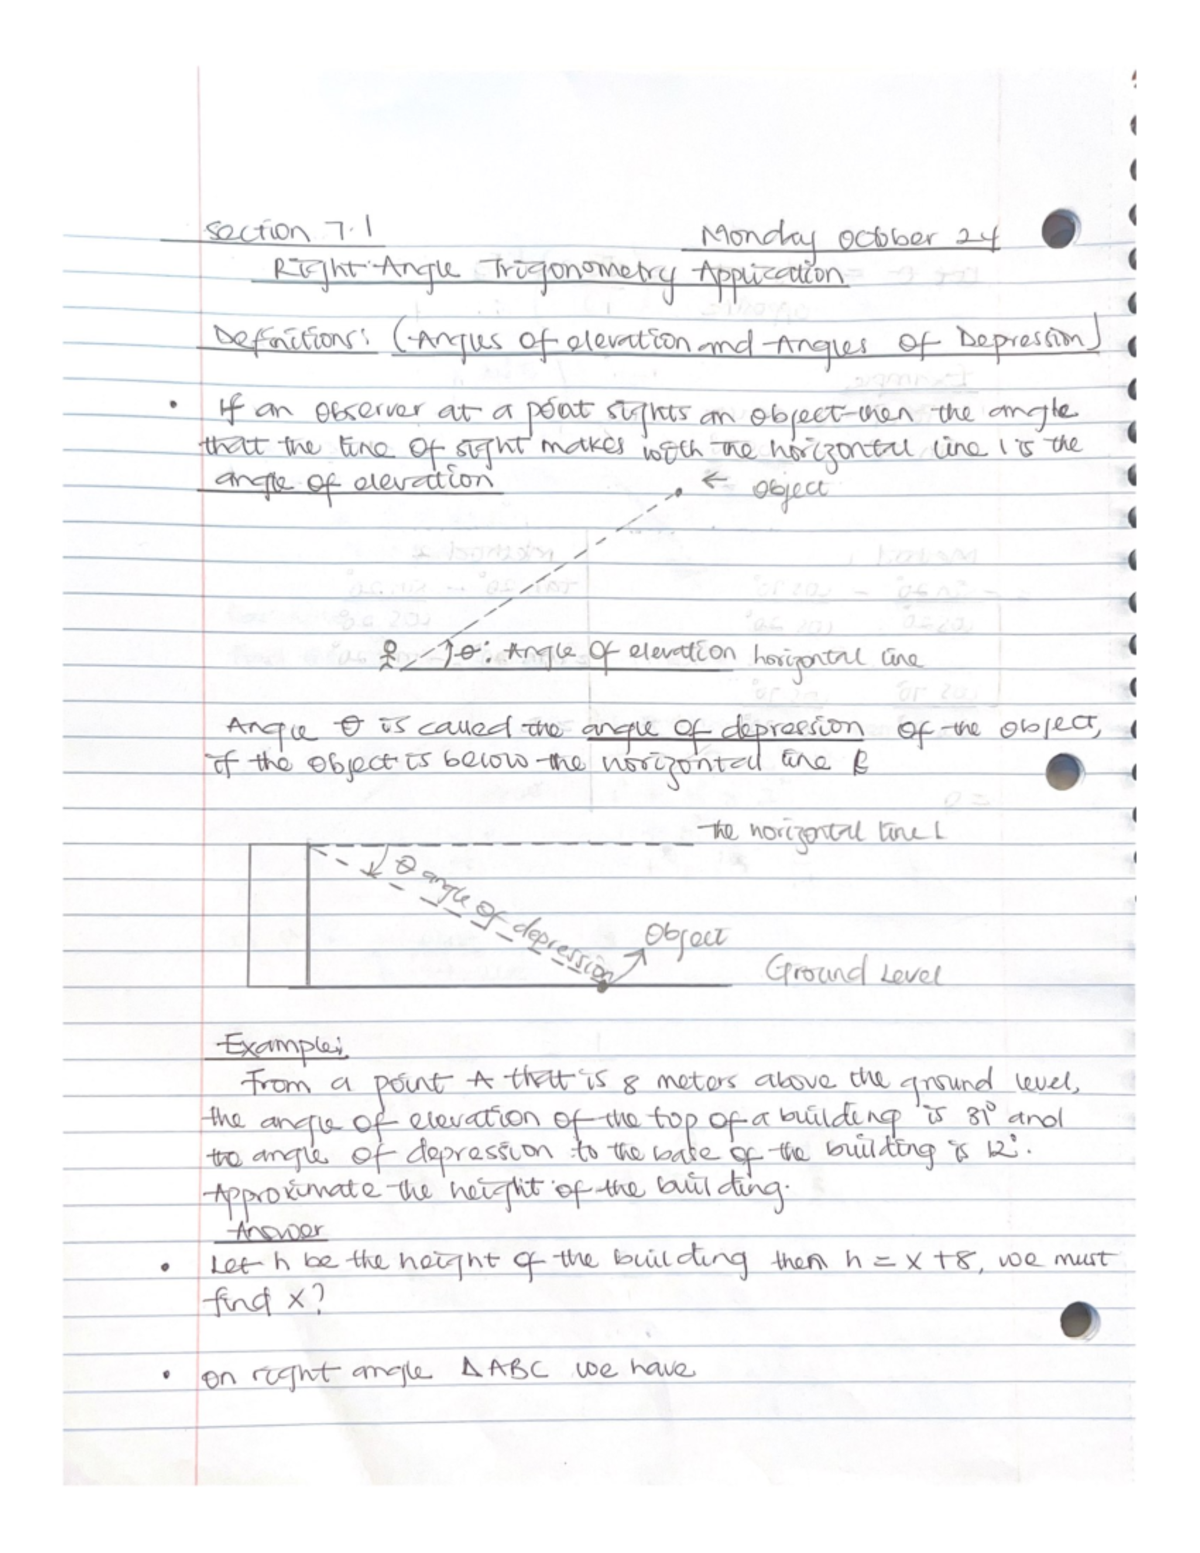 Section 7.1 Monday October 24
Right-Angle Trigonometry Application
Definitions: (Angles of elevation and Angles of Depression)
• If an observer at a point sights an object then the angle
that the line of sight makes with the horizontal line l is the
angle of elevation
← object
θ: Angle of elevation horizontal line
Angle θ is called the angle of depression of the object,
if the object is below the horizontal line l
the horizontal line L
θ angle of depression
Object
Ground Level
Example:
From a point A that is 8 meters above the ground level,
the angle of elevation of the top of a building is 31° and
the angle of depression to the base of the building is 12°.
Approximate the height of the building.
Answer
• Let h be the height of the building then h = x + 8, we must
find x?
• on right angle ΔABC we have